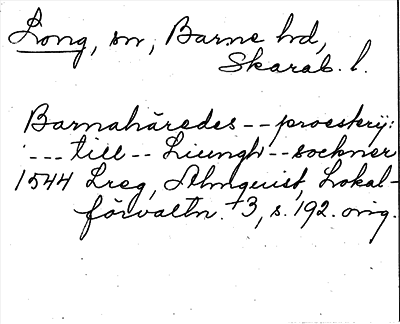 Long, sn, Barne hd,
Skarab. l.
Barnahäredes -- proestery:
--- till -- Liungh -- sockner
1544 Lreg, Almquist, Lokal-
förvaltn. +3, s. 192. orig.